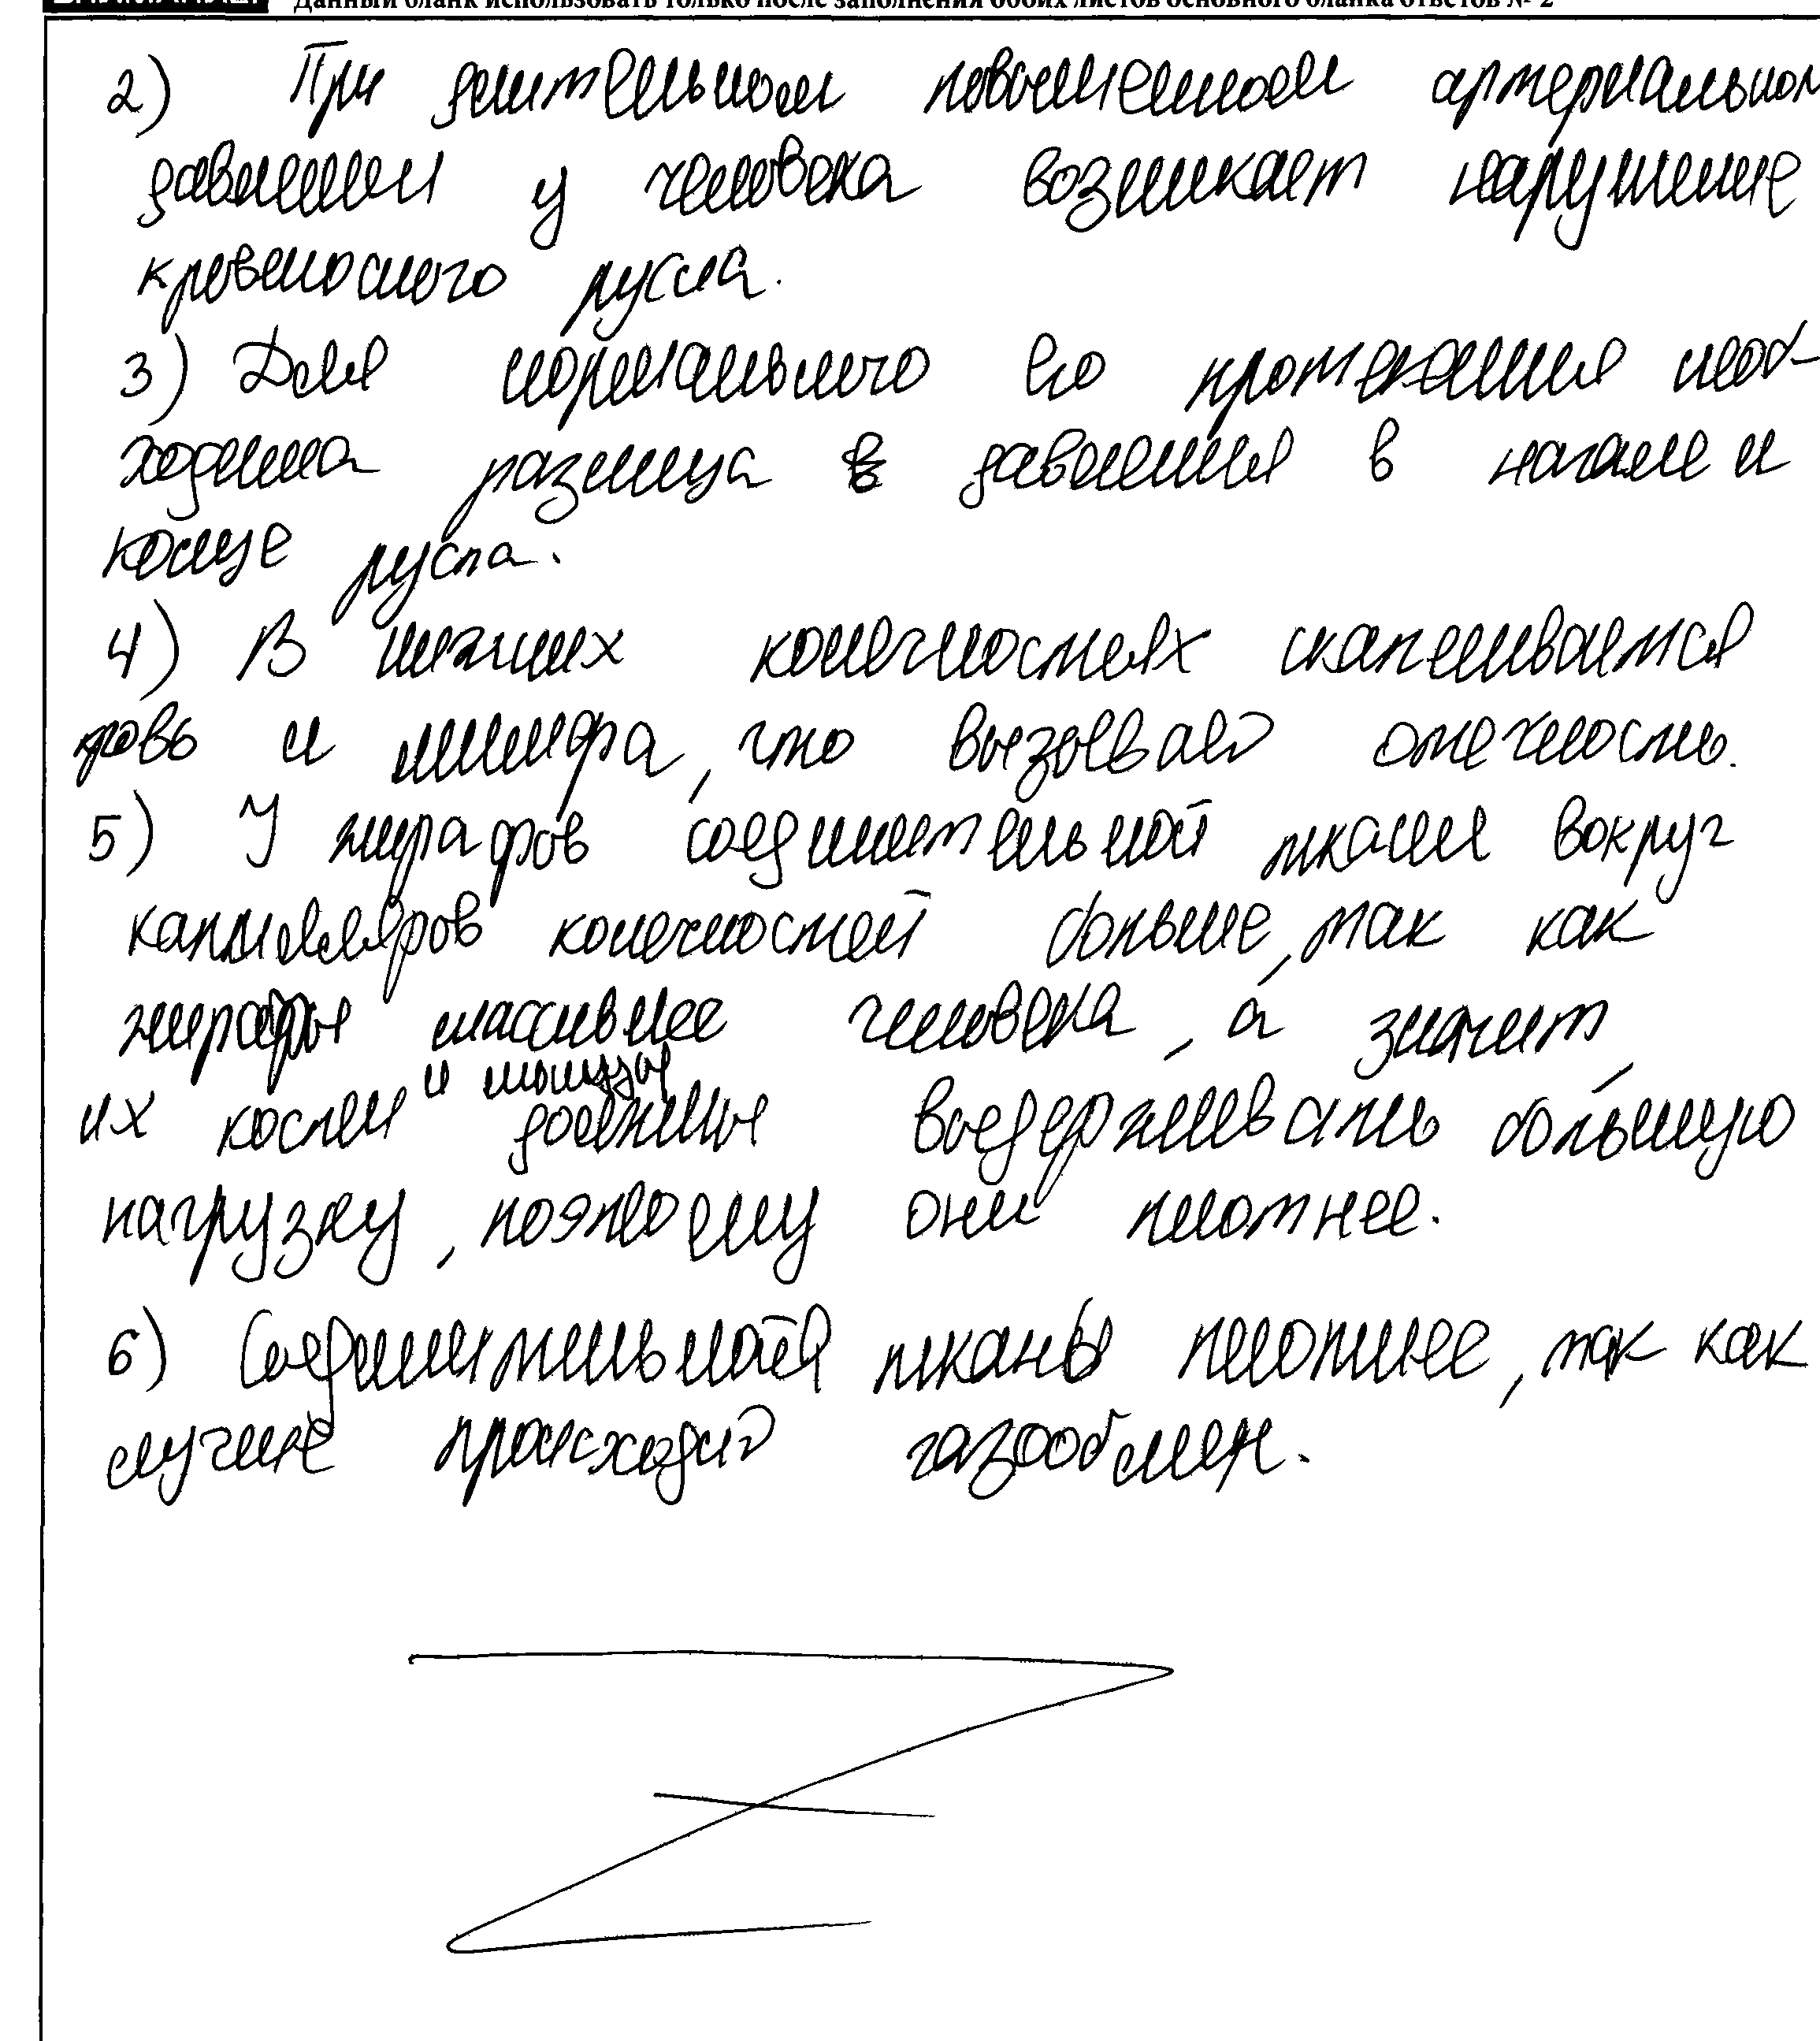 Данный бланк использовать только после заполнения обоих листов основного бланка ответов № 2
2) При длительном повышенном артериальном
давлении у человека возникает нарушение
кровеносного русла.
3) Для нормального его протекания необ-
ходима разница в давления в начале и
конце русла.
4) В нижних конечностях скапливается
кровь и лимфа, что вызывает отечность.
5) У жирафов соединительной ткани вокруг
капилляров конечностей больше, так как
жирафы массивнее человека, а значит,
и мышцы
их кости должны выдерживать большую
нагрузку, поэтому они плотнее.
6) Соединительная ткань плотнее, так как
лучше происходит газообмен.